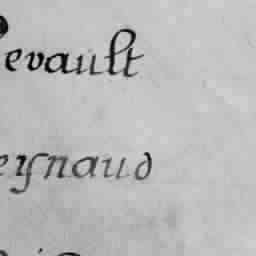 evault
eynaud